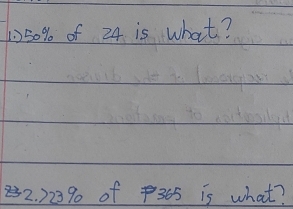 1.) 50% of 24 is what?
2.) 23% of ₱365 is what?